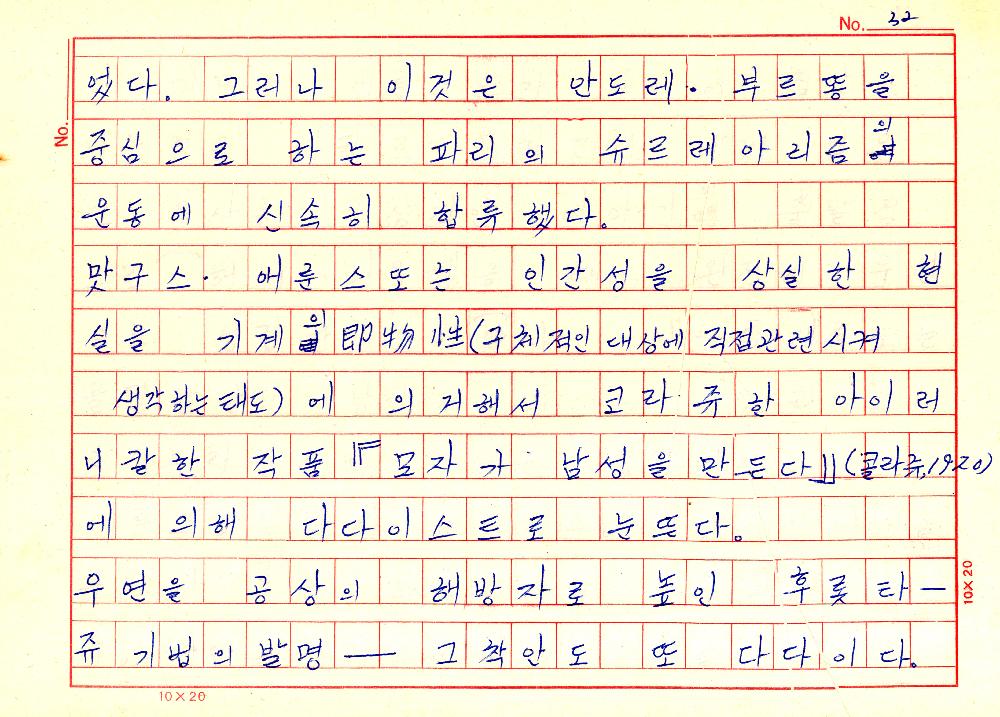 No. 32
었다. 그러나 이것은 안도레·부르똥을
No. 중심으로 하는 파리의 슈르레아리즘의
운동에 신속히 합류했다.
맛구스·에룬스또는 인간성을 상실한 현
실을 기계의 即物性(구체적인 대상에 직접관련시켜
생각하는 태도)에 의거해서 코라쥬한 아이러
니칼한 작품『모자가 남성을 만든다』(콜라쥬, 1920)
에 의해 다다이스트로 눈뜨다.
우연을 공상의 해방자로 높인 후롯타ー
쥬 기법의 발명 ── 그 착안도 또 다다이다.
10×20
10×20